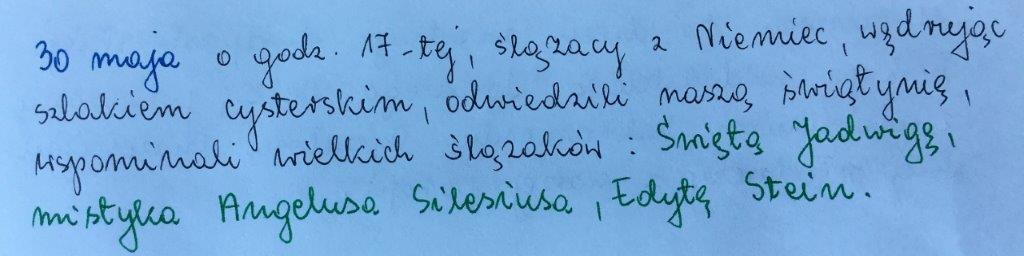 30 maja o godz. 17-tej, ślązacy z Niemiec, wędrując
szlakiem cysterskim, odwiedzili naszą świątynię,
wspominali wielkich ślązaków: Świętą Jadwigę,
mistyka Angelusa Silesiusa, Edytę Stein.